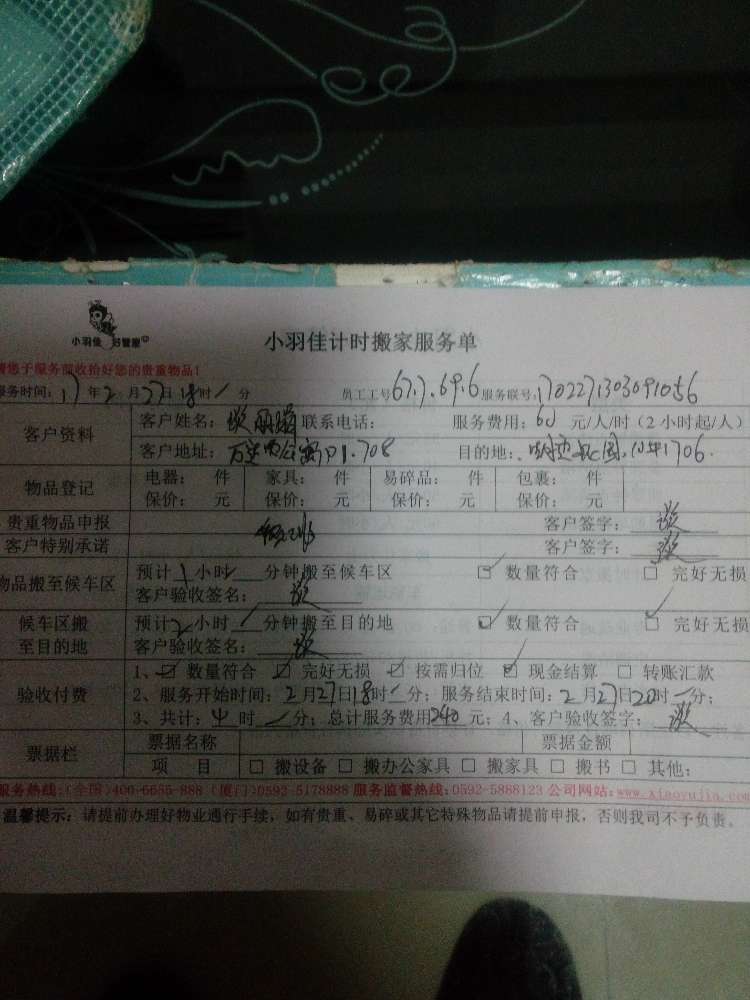 小羽佳 好管家
小羽佳计时搬家服务单
请您于服务前收拾好您的贵重物品!
服务时间: 17 年 2 月 27 日 18 时 / 分 员工工号 67.7.69.6 服务联号: 1702271303091056
客户资料 客户姓名: 联系电话: 服务费用: 60 元/人/时 (2 小时起/人)
客户地址: 708 目的地: 1706
物品登记 电器: 件 家具: 件 易碎品: 件 包裹: 件
保价: 元 保价: 元 保价: 元 保价: 元
贵重物品申报 客户签字:
客户特别承诺 客户签字:
物品搬至候车区 预计 1 小时 / 分钟搬至候车区 ☑ 数量符合 ☐ 完好无损
客户验收签名:
候车区搬至目的地 预计 2 小时 / 分钟搬至目的地 ☑ 数量符合 ☐ 完好无损
客户验收签名:
验收付费 1、☑ 数量符合 ☑ 完好无损 ☑ 按需归位 ☑ 现金结算 ☐ 转账汇款
2、服务开始时间: 2 月 27 日 18 时 / 分; 服务结束时间: 2 月 27 日 20 时 / 分;
3、共计: 4 时 / 分; 总计服务费用 240 元; 4、客户验收签字:
票据栏 票据名称 票据金额
项 目 ☐ 搬设备 ☐ 搬办公家具 ☐ 搬家具 ☐ 搬书 ☐ 其他:
服务热线:(全国)400-6655-888 (厦门)0592-5178888 服务监督热线:0592-5888123 公司网站:www.xiaoyujia.com
温馨提示: 请提前办理好物业通行手续, 如有贵重、易碎或其它特殊物品请提前申报, 否则我司不予负责。